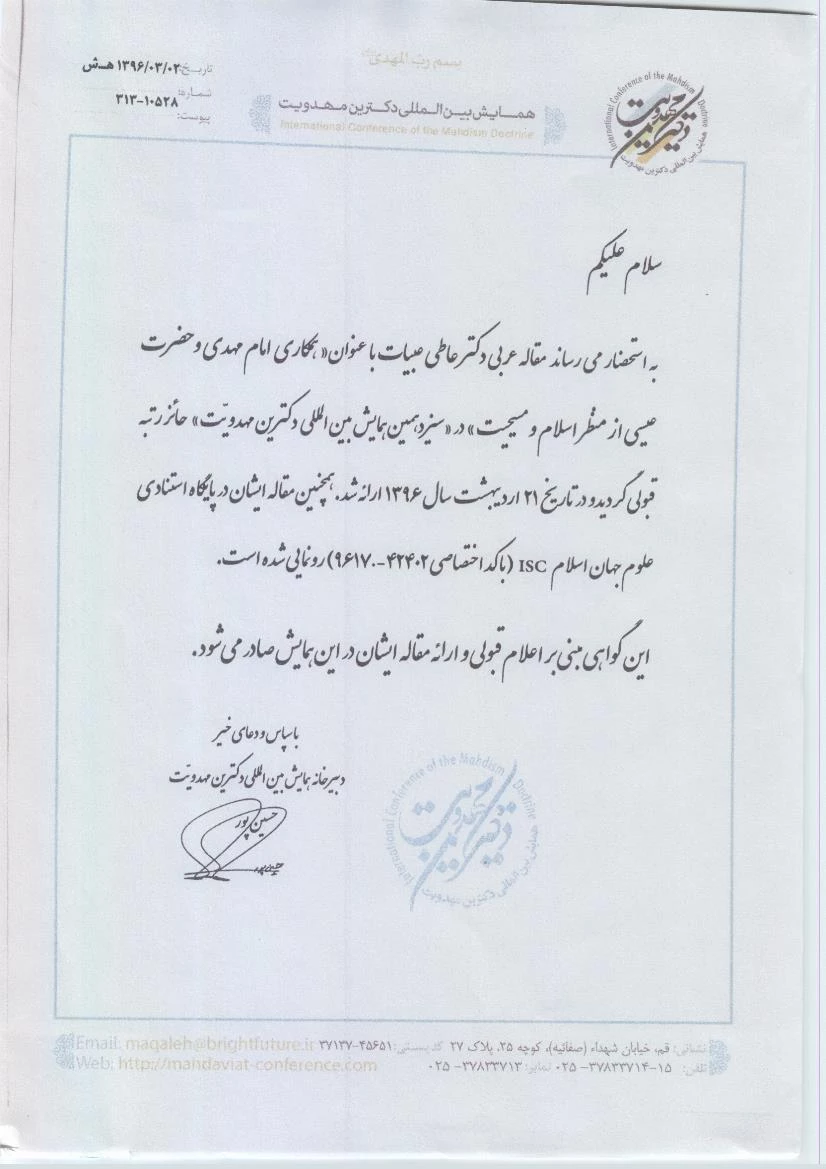 بسم رب المهدی
تاریخ: ۱۳۹۶/۰۳/۰۲ هـ.ش
شماره: ۳۱۳-۱۰۵۲۸
پیوست:
همایش بین‌المللی دکترین مهدویت
International Conference of the Mahdism Doctrine
International Conference of the Mahdism Doctrine
دکترین مهدویت
همایش بین‌المللی دکترین مهدویت
سلام علیکم
به استحضار می رساند مقاله عربی دکتر عاطی عبیات با عنوان «همکاری امام مهدی و حضرت
عیسی از منظر اسلام و مسیحیت» در «سیزدهمین همایش بین المللی دکترین مهدویّت» حائز رتبه
قبولی گردید و در تاریخ ۲۱ اردیبهشت سال ۱۳۹۶ ارائه شد. همچنین مقاله ایشان در پایگاه استنادی
علوم جهان اسلام ISC (با کد اختصاصی ۴۲۴۰۲-۹۶۱۷۰) رونمایی شده است.
این گواهی مبنی بر اعلام قبولی و ارائه مقاله ایشان در این همایش صادر می شود.
با سپاس و دعای خیر
دبیرخانه همایش بین المللی دکترین مهدویّت
حسین پور
International Conference of the Mahdism Doctrine
دکترین مهدویت
همایش بین‌المللی دکترین مهدویت
نشانی: قم، خیابان شهداء (صفائیه)، کوچه ۲۵، پلاک ۲۷ کد پستی: ۴۵۶۵۱-۳۷۱۳۷ Email: maqaleh@brightfuture.ir
تلفن: ۱۵-۳۷۸۳۳۷۱۴-۰۲۵ نمابر: ۳۷۸۳۳۷۱۳-۰۲۵ Web: http://mahdaviat-conference.com